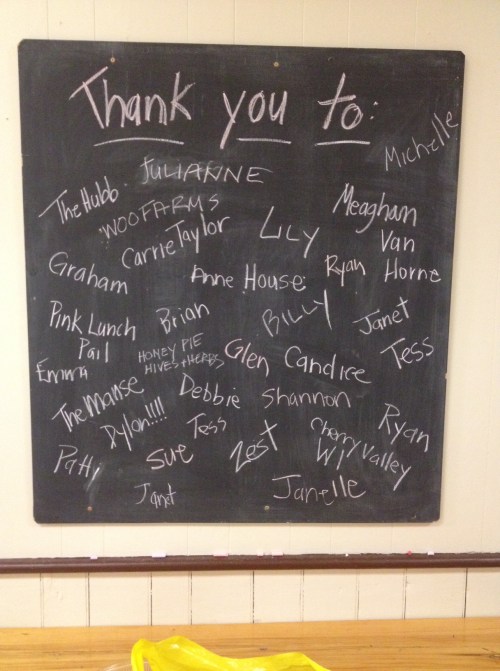 Thank you to:
Michelle
JULIANNE
The Hubb
WOOFARMS
Meagham
Carrie Taylor
LILY
Van
Horne
Graham
Anne House
Ryan
Pink Lunch
Pail
Brian
BILLY
Janet
HONEY PIE
HIVES + HERBS
Glen
Candice
Tess
Emma
The Manse
Debbie
Shannon
Dylon!!!!
Tess
Ryan
Cherry Valley
WI
Patti
Sue
Zest
Janet
Janelle